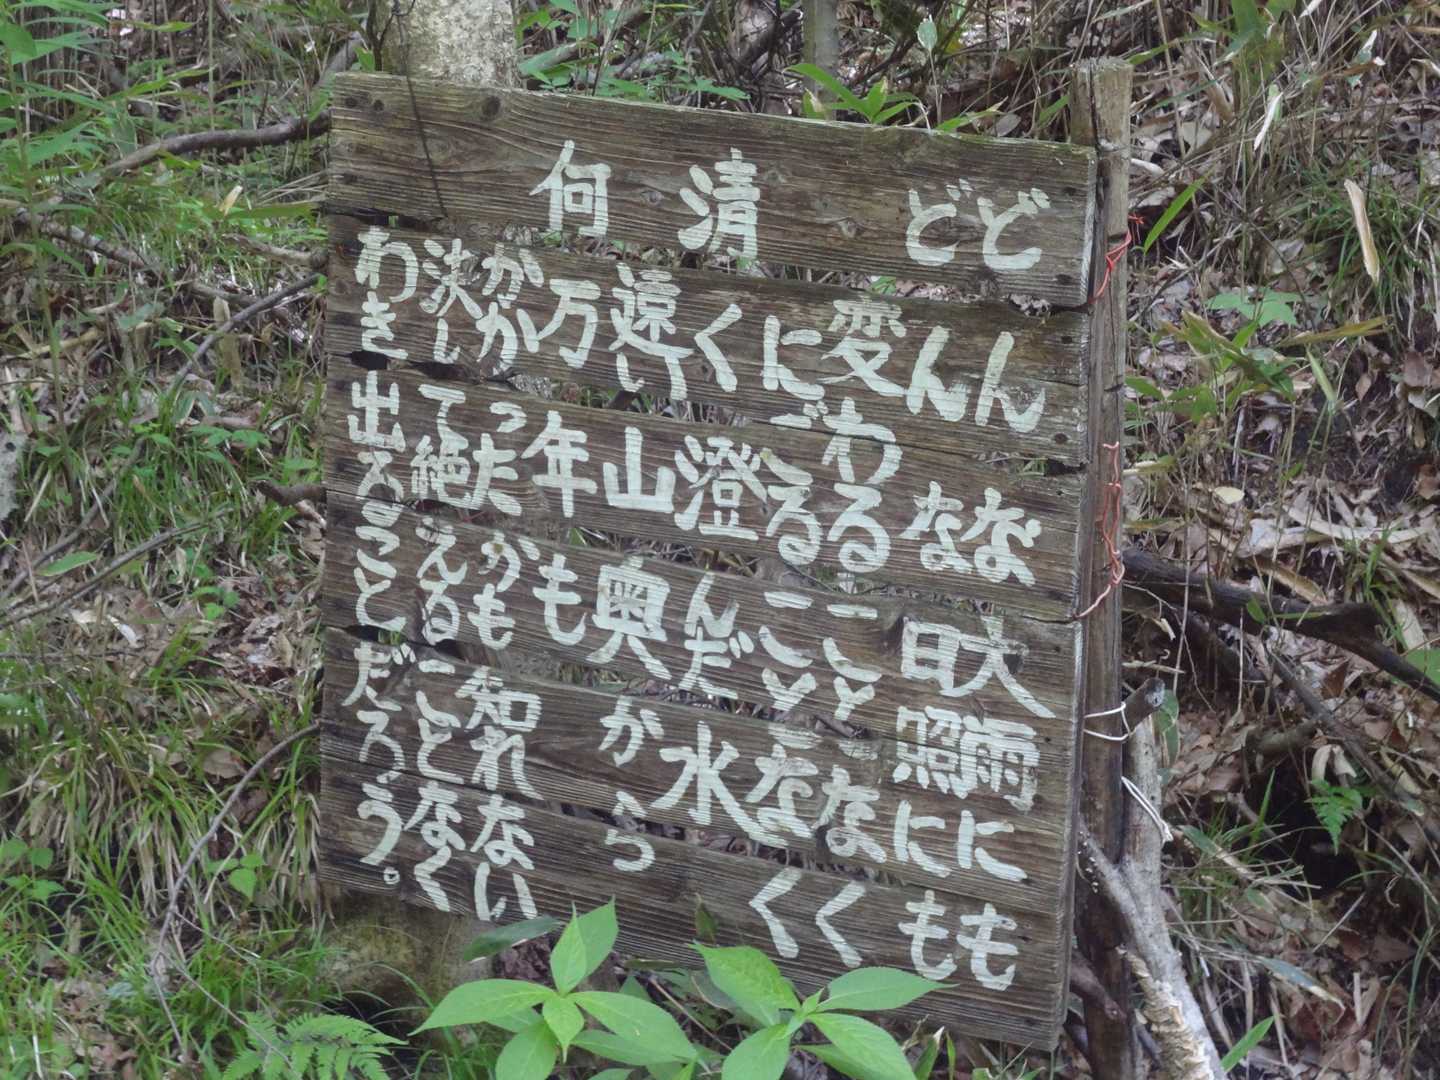 どんな大雨にも
どんな日照にも
変わることなく
にごることなく
清く澄んだ水
遠い山奥から
何万年も
かかったかも知れない
決して絶えることなく
わき出ることだろう。